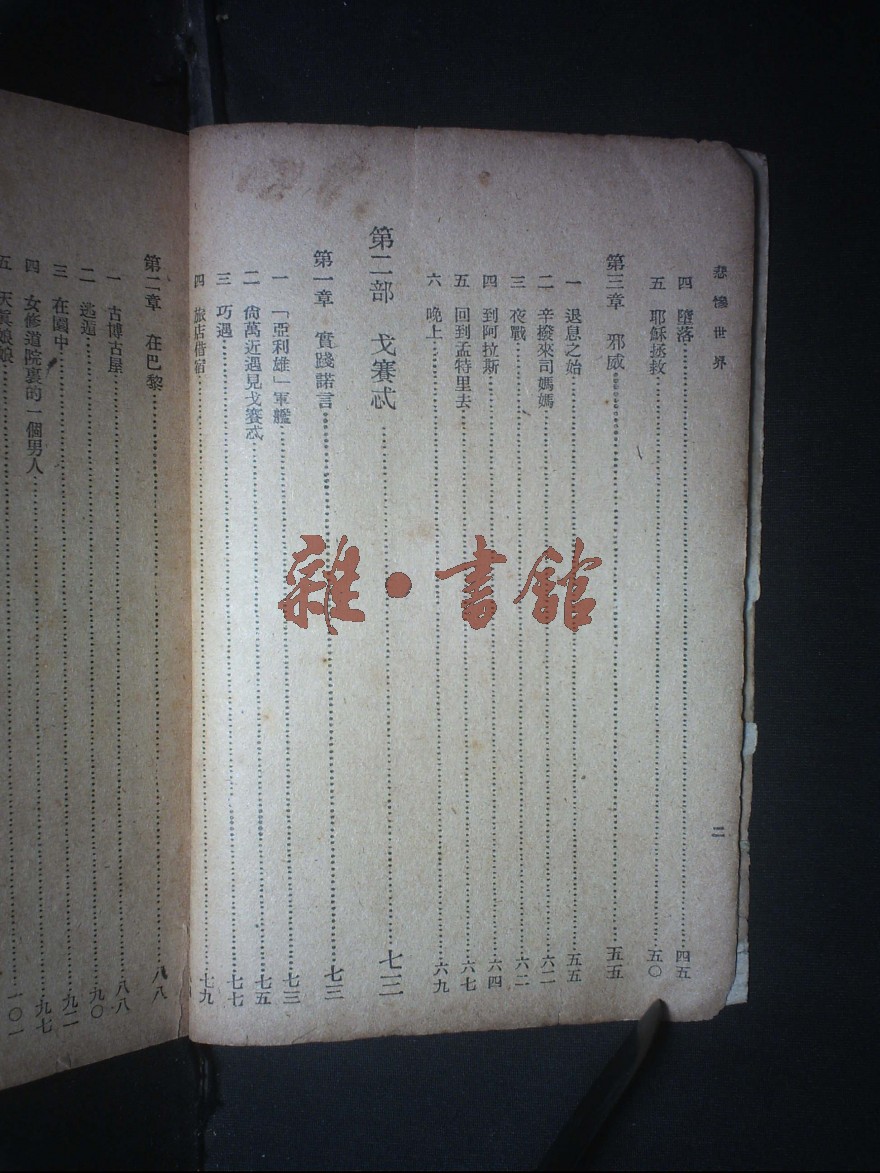 悲慘世界
二
四 墮落 四五
五 耶穌拯救 五〇
第三章 邪威 五五
一 退息之始 五五
二 辛撥來司媽媽 六二
三 夜戰 六二
四 到阿拉斯 六四
五 回到孟特里去 六七
六 晚上 六九
第二部 戈賽忒 七三
第一章 實踐諾言 七三
一 「亞利雄」軍艦 七三
二 尙萬近遇見戈賽忒 七五
三 巧遇 七七
四 旅店借宿 七九
第二章 在巴黎 八八
一 古博古屋 八八
二 逃遁 九〇
三 在園中 九二
四 女修道院裏的一個男人 九七
五 天眞娘娘 一〇一
雜·書館